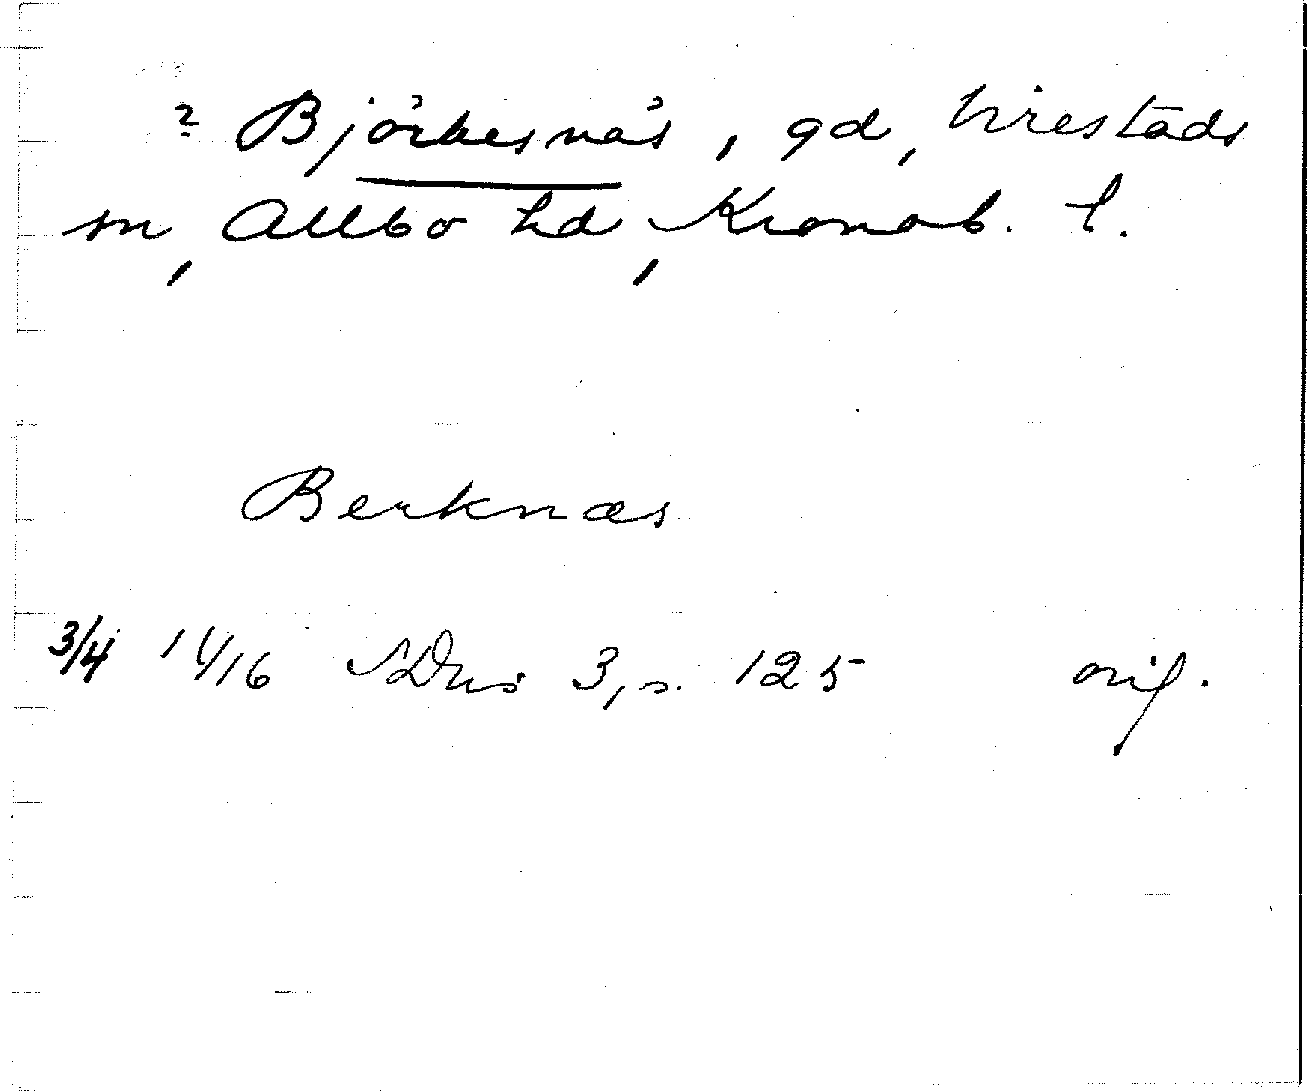 ? Björkesnäs, gd, Virestads
sn, Allbo hd, Kronob. l.
Berknæs
3/4 1416 SDns 3, s. 125 orig.